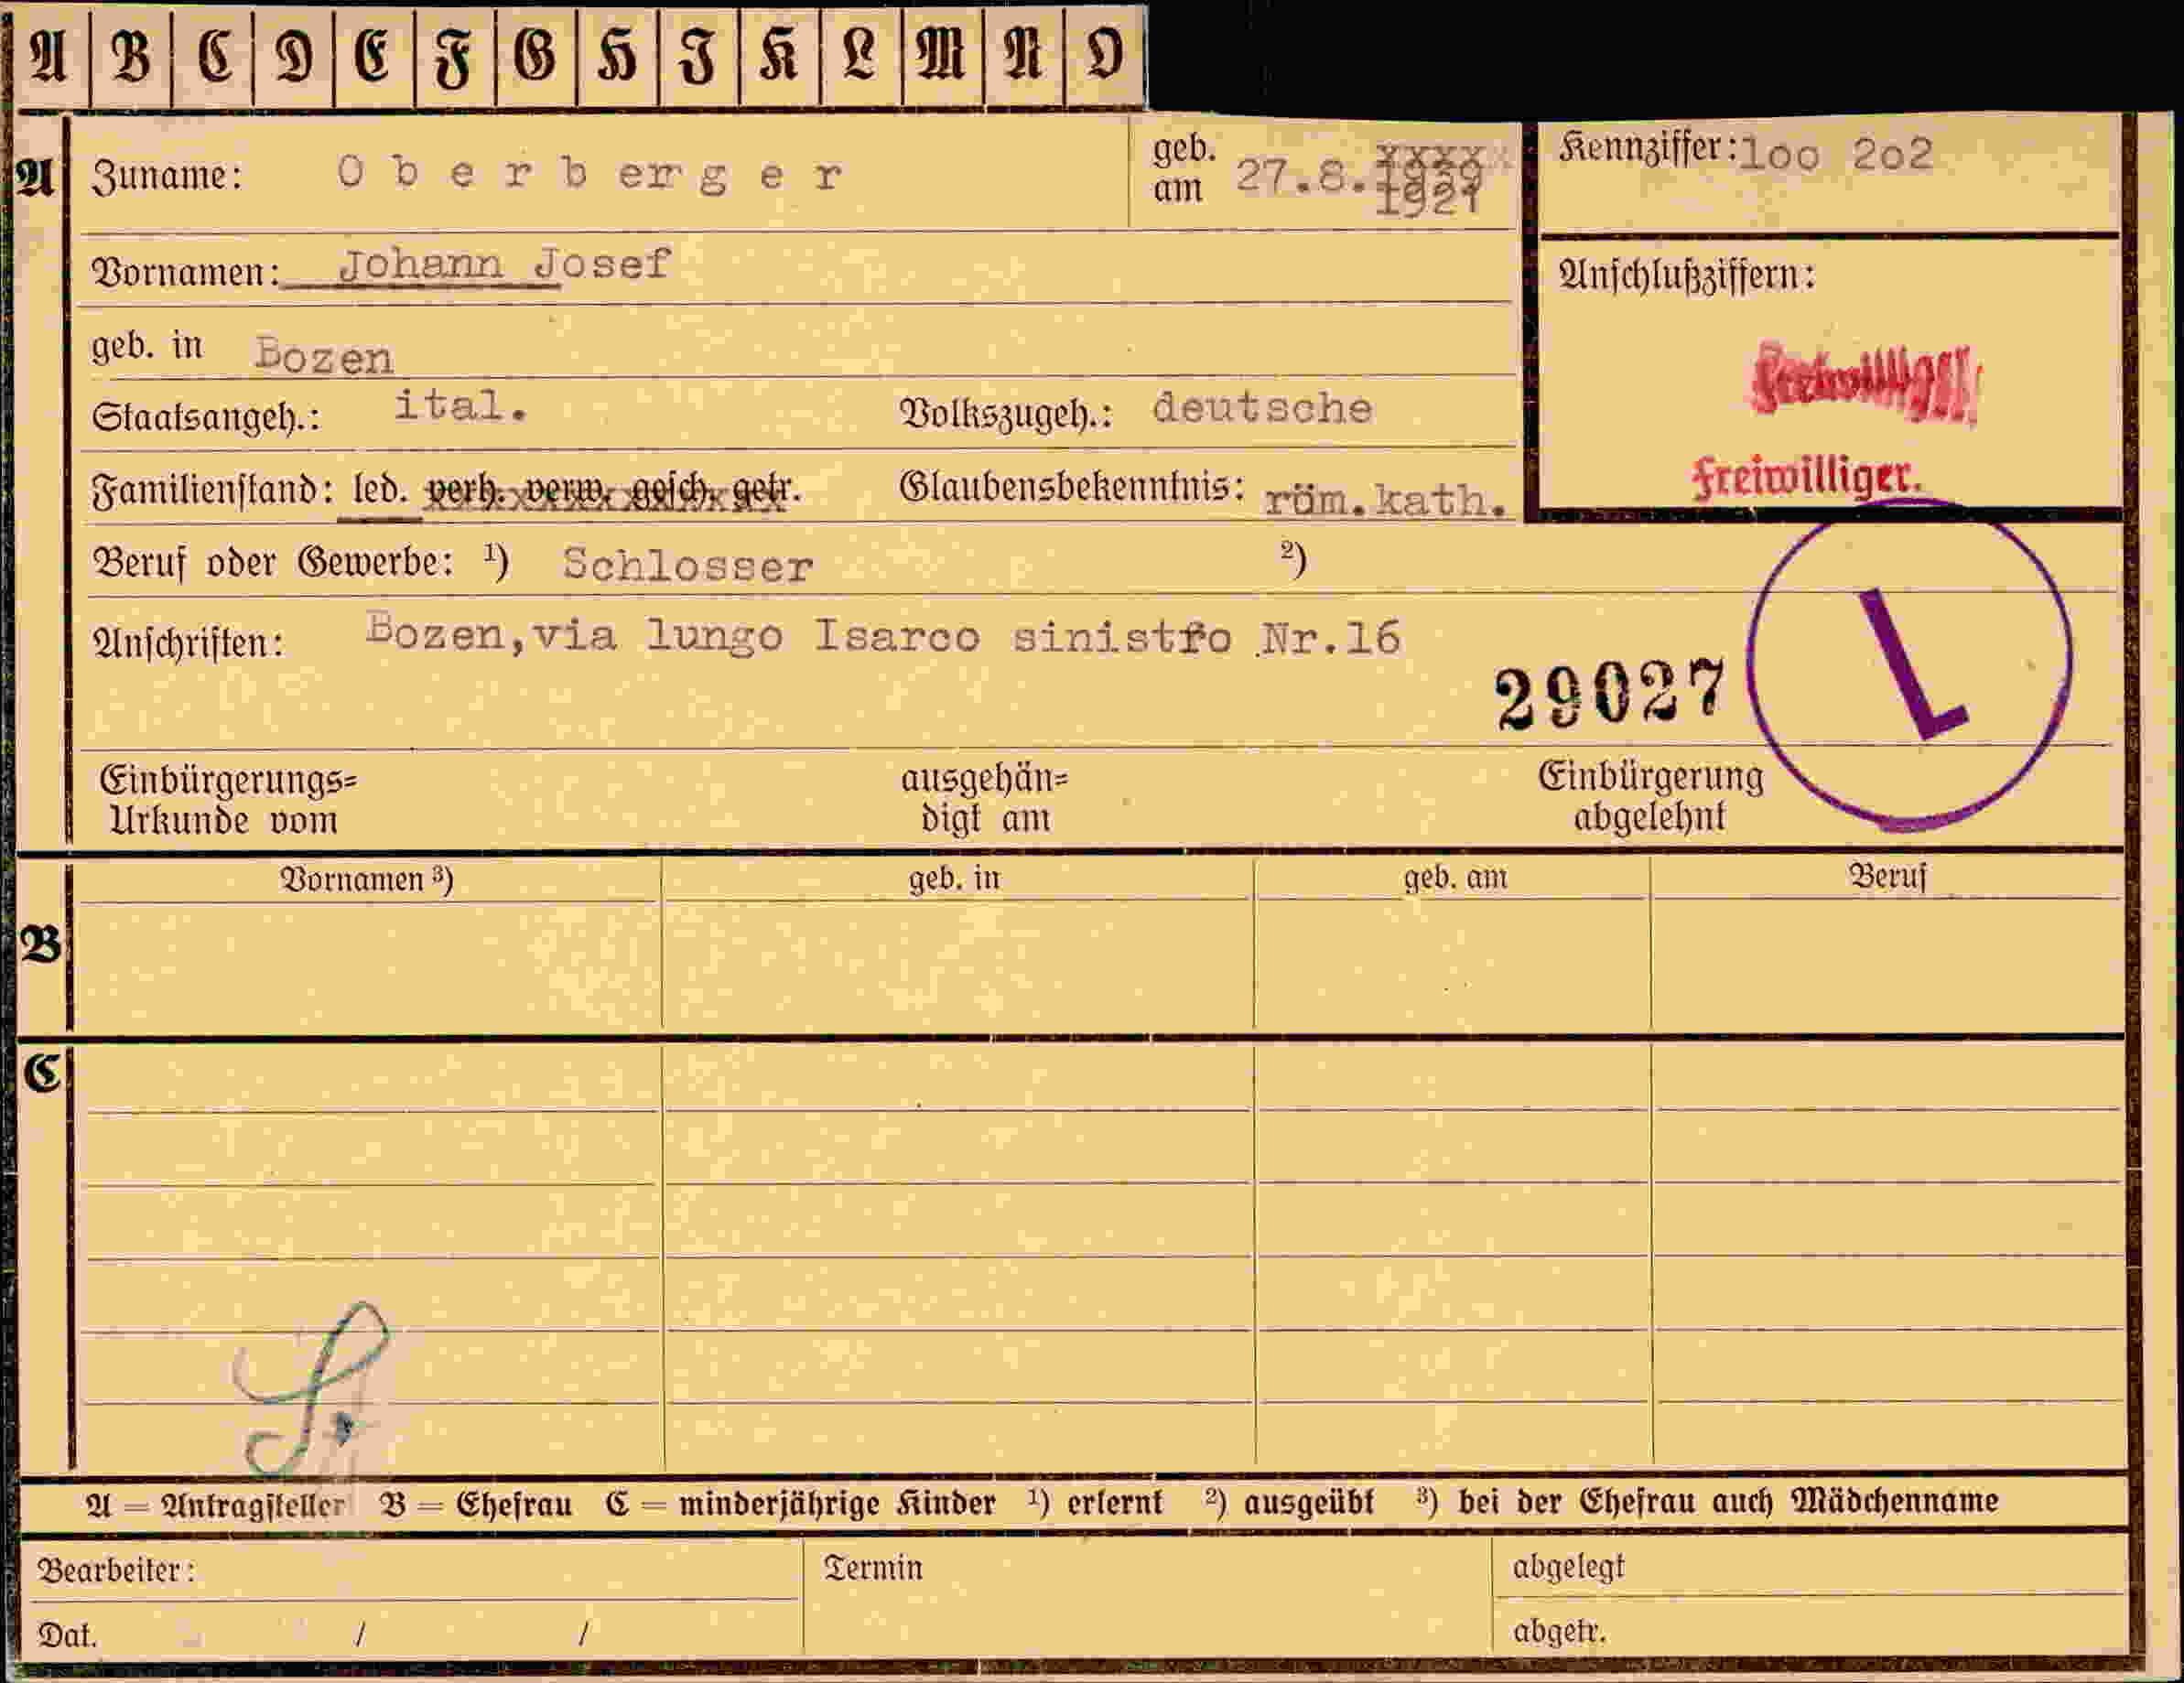 A B C D E F G H I K L M N O
A Zuname: Oberberger geb. am 27.8. 1921 Kennziffer: 1oo 2o2
Vornamen: Johann Josef
Anschlußziffern:
geb. in Bozen
Freiwilliger.
Staatsangeh.: ital. Volkszugeh.: deutsche
Familienstand: led. verh. verw. gesch. getr. Glaubensbekenntnis: röm.kath.
Freiwilliger.
Beruf oder Gewerbe: ¹) Schlosser ²)
Anschriften: Bozen,via lungo Isarco sinistro Nr.16
29027
L
Einbürgerungs= ausgehän= Einbürgerung
Urkunde vom digt am abgelehnt
Vornamen ³) geb. in geb. am Beruf
B
C
A = Antragsteller B = Ehefrau C = minderjährige Kinder ¹) erlernt ²) ausgeübt ³) bei der Ehefrau auch Mädchenname
Bearbeiter: Termin abgelegt
Dat. / / abgetr.